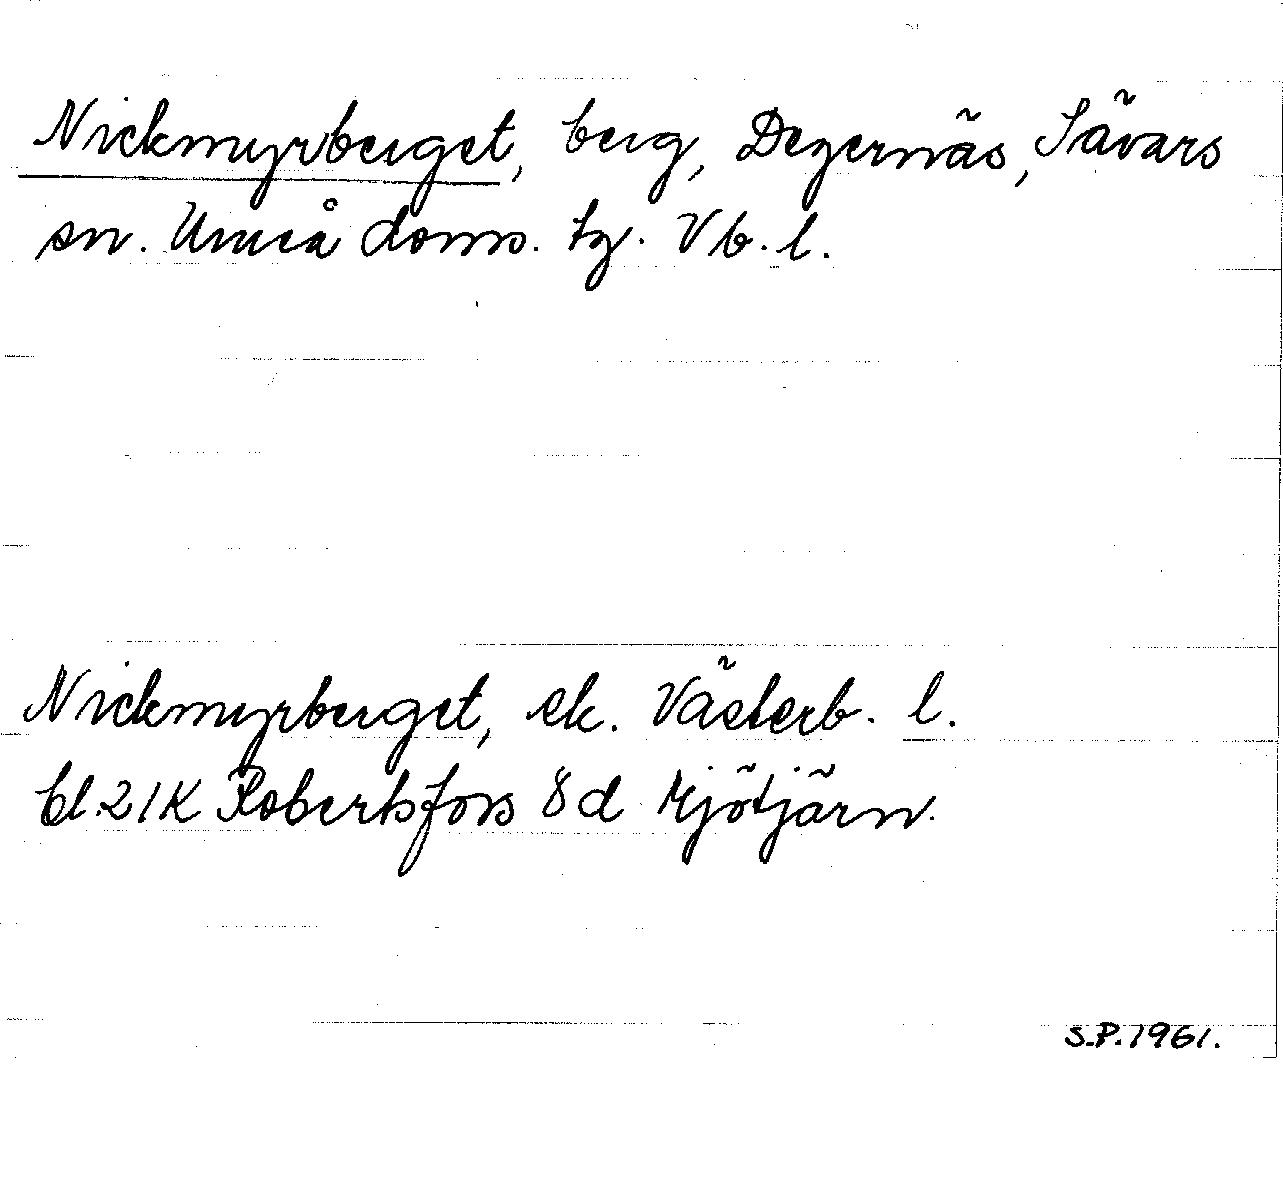 Nickmyrberget, berg, Degernäs, Sävars
sn. Umeå doms. tg. Vb. l.
Nickmyrberget, ek. Västerb. l.
bl. 21K Robertsfors 8d Mjötjärn.
S.P. 1961.